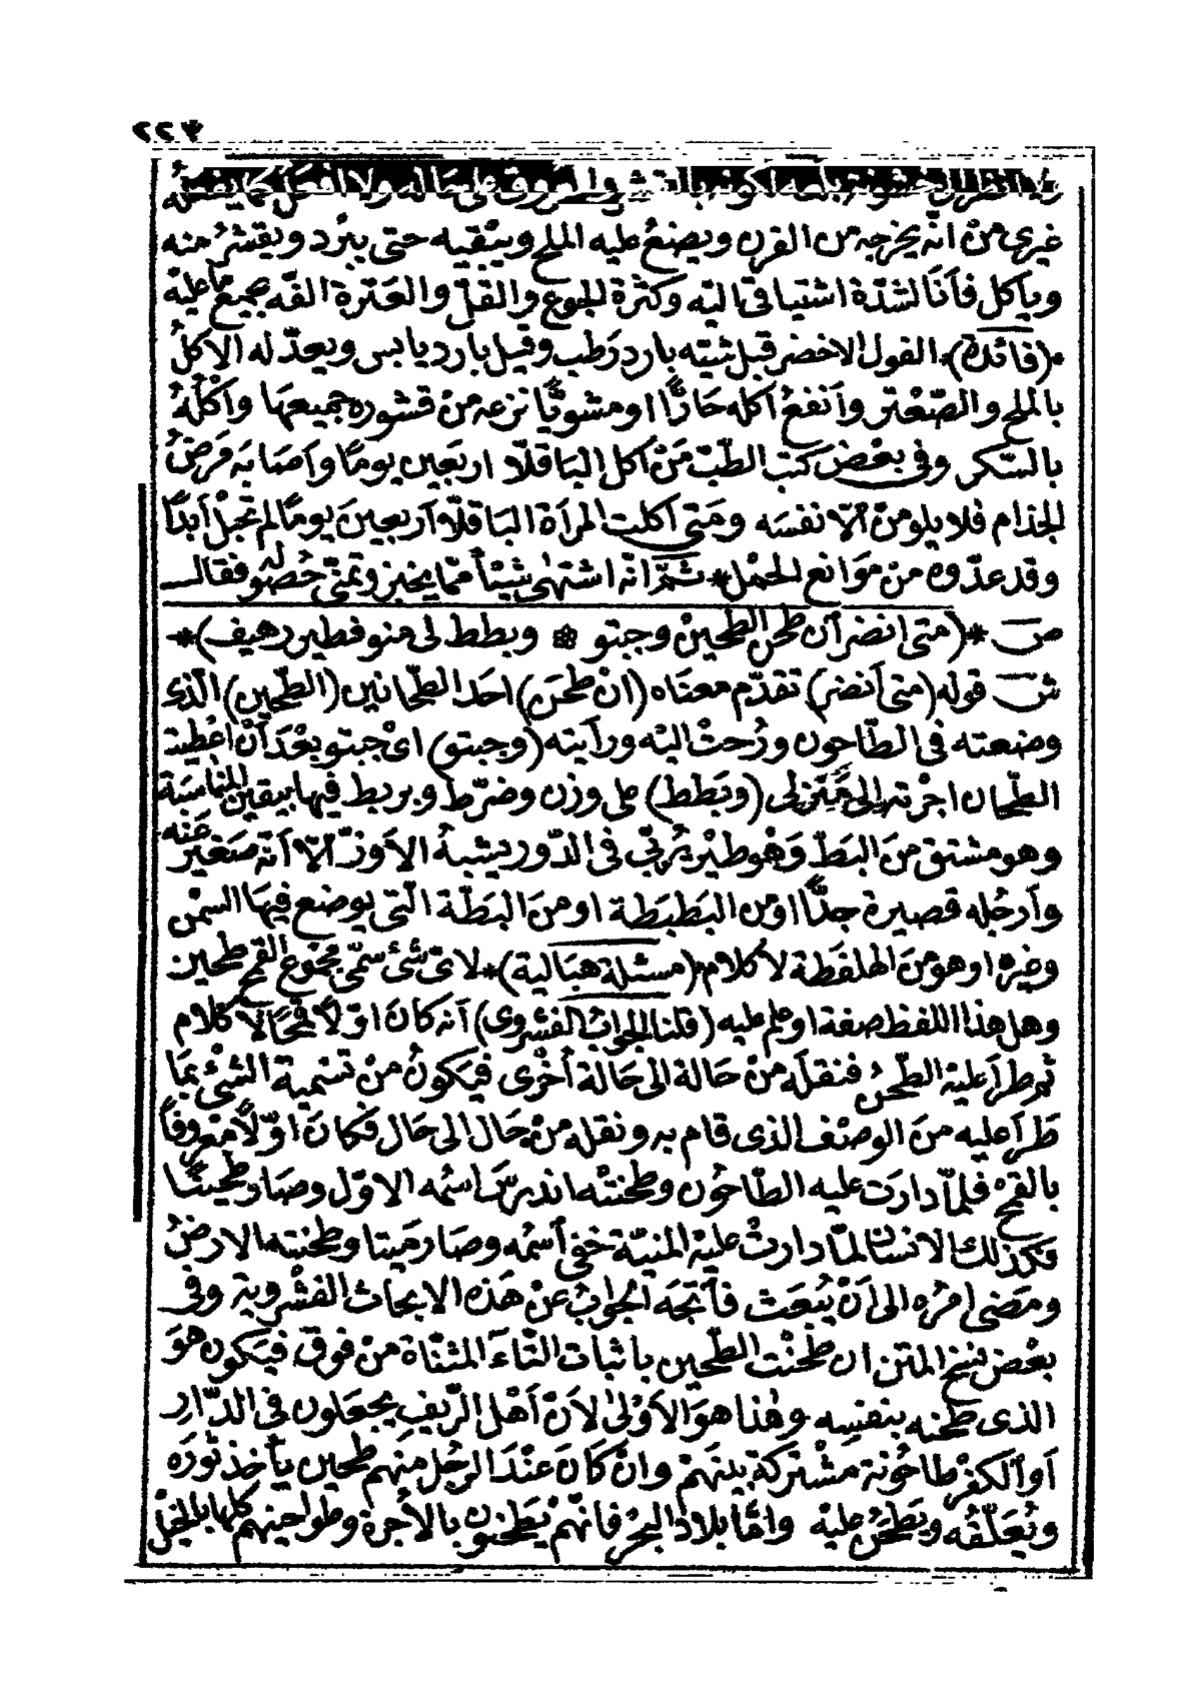 ٢٢٣
على حاله ولا أفعل كما يفعله
غيرى من انّه يخرجه من الفرن ويضع عليه الملح ويبقيه حتى يبرد ويقشر منه
ويأكل فأنا لشدّة اشتياقى اليه وكثرة الجوع والقلّ والعترة الفّه جميع ما عليه
*(فائدة)* الفول الاخضر قبل شيّه بارد رطب وقيل بارد يابس ويعدّ له الاكل
بالملح والصّعتر وأنفع أكله حارًّا او مشويًّا نزعه من قشوره جميعها وأكله
بالسّكر وفى بعض كتب الطّبّ من أكل الباقلّا اربعين يومًا وأصابه مرض
الجذام فلا يلومنّ الّا نفسه ومتى أكلت المرأة الباقلّا أربعين يومًا لم تحبل أبدًا
وقد عدّوه من موانع الحمل * ثمّ انّه اشتهى شيئًا ممّا يخبز وتمنّى حصوله فقال
ص *(متى انضر أن طحن الطحين وجبتو * وبطط لى منو فطير رهيف)*
ش قوله (متى أنضر) تقدّم معناه (ان طحن) احد الطّحانين (الطّحين) الّذى
وضعته فى الطّاحون ورُحتْ اليه ورأيته (وجبتو) اىْ جبتو بعْد أنْ اعْطيت
الطّحان اجرته الى منزلى (وبَطط) على وزن وضرّط وبربط فيها بيقين المناسبة
وهو مشتق من البَطّ وهو طيْر يُربّى فى الدّور يشبهُ الاَوزّ الّا أنّه صَغير عنه
وأرجُله قصيرة جدًّا او من البَطبَطة او من البَطّة الّتى يوضع فيهَا السمْن
وغيره او هو من الهلفَطة لا كلام *(مسئلة هبَالية)* لاىّ شئ سمّى مجموع القمح طحين
وهل هذا اللفظ صفة او علم عليه (قلنا الجواب الفشروى) أنه كان اوّلًا قمحًا لا كلام
ثم طرأ عليه الطّحن فنقله من حالة الى حالة أخرى فيكونُ منْ تسْمية الشئ بمَا
طَرأ عليه من الوصْف الذى قام به ونقله من حال الى حال فكان اوّلًا معروفًا
بالقمح فلمّا دارت عليه الطّاحون وطحنتْه اندرسَ اسْمه الاوّل وصار طحينًا
فكذلك الانسان لمّا دارتْ عليه المنيّة خفى أسْمه وصار ميتا وطحنته الارضُ
ومَضى امرُه الى أنْ يُبعَث فأتّجه الجوابُ عنْ هَذه الابحاث الفشروية وفى
بعْض نسخ المتن ان طحنْت الطّحين باثبات التّاء المثنّاة منْ فوق فيكون هوَ
الذى طحنه بنفسه وهٰذا هوَ الأوْلىٰ لأنّ أهْل الرّيف يجعَلون فى الدّار
أو الكفْر طاحونة مشْتركة بينَهمْ وانْ كانَ عنْدَ الرجُل منهم طحين يأخذ ثورَه
ويُعلّقُه ويَطحَنُ عليْه وامّا بلاد البحْر فانّهم يَطحنون بالأجرة وطواحينهم كلها بالخيْل